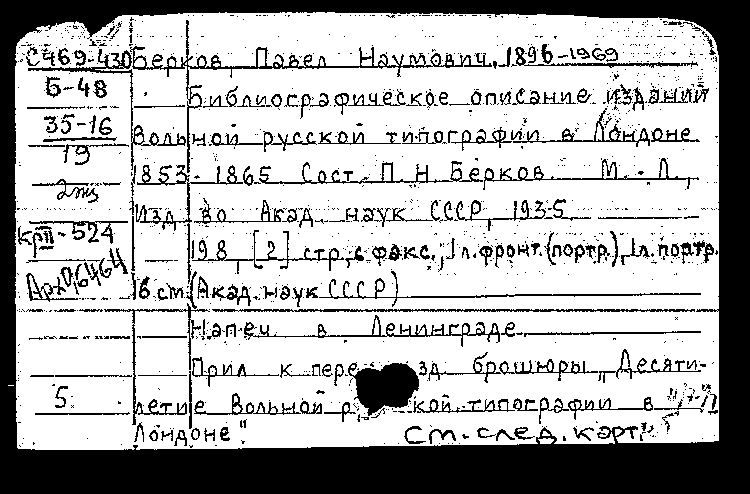 С469-430 Берков, Павел Наумович, 1896-1969
Б-48 Библиографическое описание изданий
35-16 Вольной русской типографии в Лондоне
19
1853 - 1865. Сост. П. Н. Берков. М. - Л.,
2 экз
Изд-во Акад. наук СССР, 1935.
КрIII-524
198, [2] стр., с факс.; 1 л. фронт. (портр.), 1 л. портр.
16 см (Акад. наук СССР)
Напеч. в Ленинграде
Прил. к брошюры „Десяти-
5 летие Вольной типографии в
Лондоне".
См. след. карт.